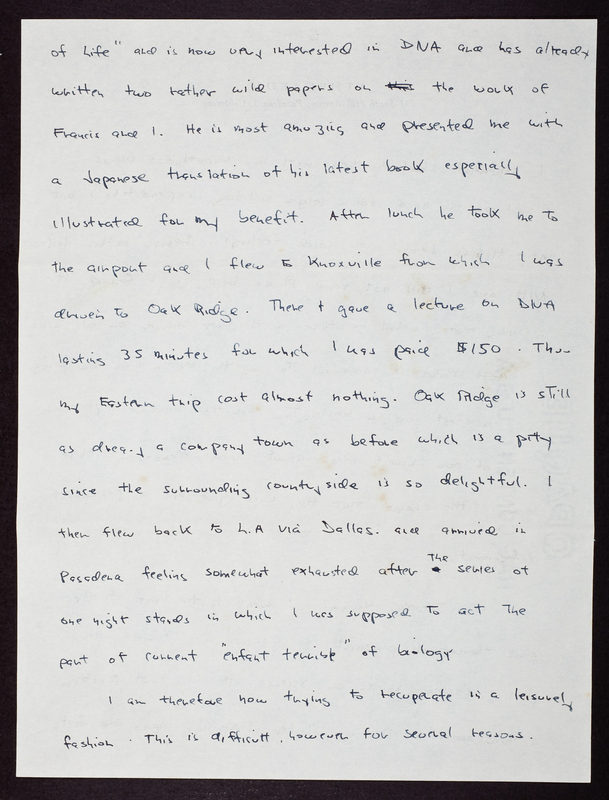 of life" and is now very interested in DNA and has already
written two rather wild papers on this the work of
Francis and I. He is most amazing and presented me with
a Japanese translation of his latest book especially
illustrated for my benefit. After lunch he took me to
the airport and I flew to Knoxville from which I was
driven to Oak Ridge. There I gave a lecture on DNA
lasting 35 minutes for which I was paid $150. Thus
my Eastern trip cost almost nothing. Oak Ridge is still
as dreary a company town as before which is a pity
since the surrounding countryside is so delightful. I
then flew back to L.A via Dallas. and arrived in
Pasadena feeling somewhat exhausted after the series of
one night stands in which I was supposed to act the
part of current "enfant terrible" of biology
I am therefore now trying to recuperate in a leisurely
fashion. This is difficult, however for several reasons.